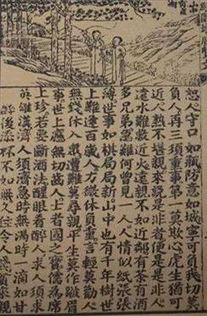 恕人守口如瓶防意如城寧可負我切莫
負人再三須重事第一莫欺心虎生猶可
近人熟不堪親來說是非者便是是非人
遠水難救近火遠親不如近鄰有茶有酒
多兄弟急難何曾見一人人情似紙張張
薄世事如棋局局新山中也有千年樹世
上難逢百歲人力微休負重言輕莫勸人
無錢休入眾遭難莫尋親平生莫作皺眉
事世上應無切齒人士者國之寶儒為席
上珍若要斷酒法醒眼看醉人求人須求
英雄漢濟人須濟急時無渴時一滴如甘
醉後添杯不如無久住令人賤頻來親